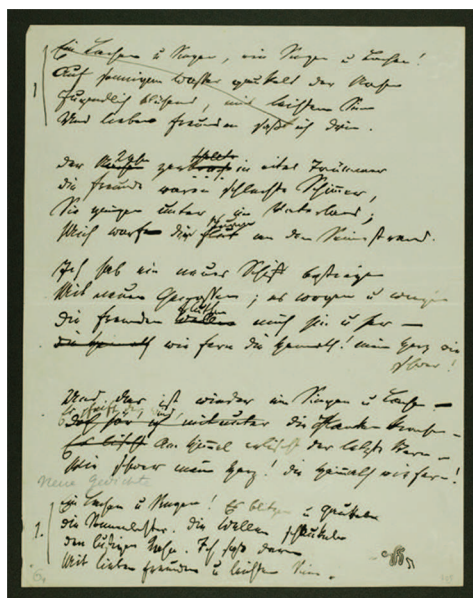 Ein Lachen u Singen, ein Singen u Lachen!
Auf sonnigem Wasser gaukelt der Nachen
Jugendlich blühend, mit leichtem Sinn
Und lieben Freunden saß ich drin.
Der zerbrach in eitel Trümmer
die Freunde waren schlechte Schwimmer,
Sie gingen unter im Vaterland;
Mich warf der Sturm an den Seinestrand.
Ich hab ein neues Schiff bestiegen
Mit neuen Genossen; es wogen u wiegen
die fremden Fluten mich hin u her –
wie fern die Heimath! mein Herz wie
schwer!
Und das ist wieder ein Singen u Lachen –
Es pfeift der Wind
die Planken krachen –
Am Himmel erlischt der letzte Stern –
Wie schwer mein Herz! die Heimath wie fern!
Neue Gedichte
1. Ein Lachen u Singen! Es blitzen u gaukeln
die Sonnenlichter. die Wellen schaukeln
den lustigen Kahn. Ich saß darin
Mit lieben Freunden u leichtem Sinn.